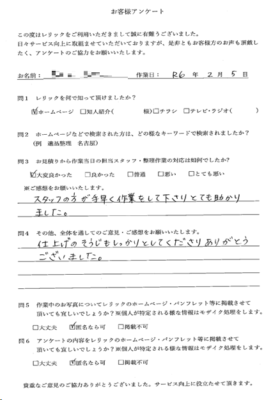 お客様アンケート
この度はレリックをご利用いただきまして誠に有難うございました。
日々サービス向上に取組ませていただいておりますが、是非ともお客様方のお声も頂戴し
たく、アンケートのご協力をお願いいたします。
お名前: 様 作業日: R6 年 2 月 5 日
問1 レリックを何で知って頂けましたか?
☑ホームページ □知人紹介( 様)□チラシ □テレビ・ラジオ( )
問2 ホームページなどで検索された方は、どの様なキーワードで検索されましたか?
(例 遺品整理 名古屋)
問3 お見積りから作業当日の担当スタッフ・整理作業の対応は如何でしたか?
☑大変良かった □良かった □普通 □悪い □とても悪い
※ご感想をお願いいたします。
スタッフの方が手早く作業をして下さりとても助かり
ました。
問4 その他、全体を通してのご意見・ご感想をお願いいたします。
仕上げのそうじもしっかりとしてくださりありがとう
ございました。
問5 作業中のお写真についてレリックのホームページ・パンフレット等に掲載させて
頂いても宜しいでしょうか?※個人が特定される様な情報はモザイク処理をします。
□大丈夫 ☑匿名なら可 □掲載不可
問6 アンケートの内容をレリックのホームページ・パンフレット等に掲載させて
頂いても宜しいでしょうか?※個人が特定される様な情報はモザイク処理をします。
□大丈夫 ☑匿名なら可 □掲載不可
貴重なご意見のご協力ありがとうございました。サービス向上に役立たせて頂きます。